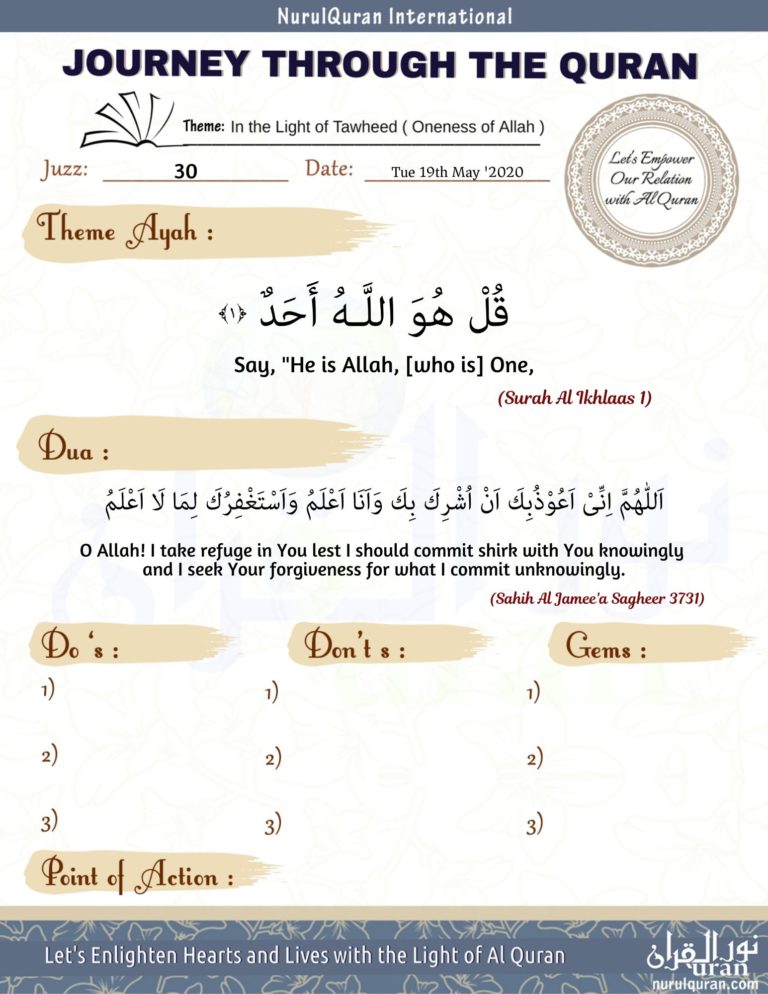 NurulQuran International
JOURNEY THROUGH THE QURAN
Theme: In the Light of Tawheed ( Oneness of Allah )
Let's Empower
Our Relation
with Al Quran
Juzz: 30 Date: Tue 19th May '2020
Theme Ayah :
قُلْ هُوَ اللَّـهُ أَحَدٌ ﴿١﴾
Say, "He is Allah, [who is] One,
(Surah Al Ikhlaas 1)
Dua :
اَللّٰهُمَّ اِنِّىْ اَعُوْذُبِكَ اَنْ اُشْرِكَ بِكَ وَاَنَا اَعْلَمُ وَاَسْتَغْفِرُكَ لِمَا لَا اَعْلَمُ
O Allah! I take refuge in You lest I should commit shirk with You knowingly
and I seek Your forgiveness for what I commit unknowingly.
(Sahih Al Jamee'a Sagheer 3731)
Do 's : Don't s : Gems :
1) 1) 1)
2) 2) 2)
3) 3) 3)
Point of Action :
Let's Enlighten Hearts and Lives with the Light of Al Quran
نور القرآن
uran
nurulquran.com